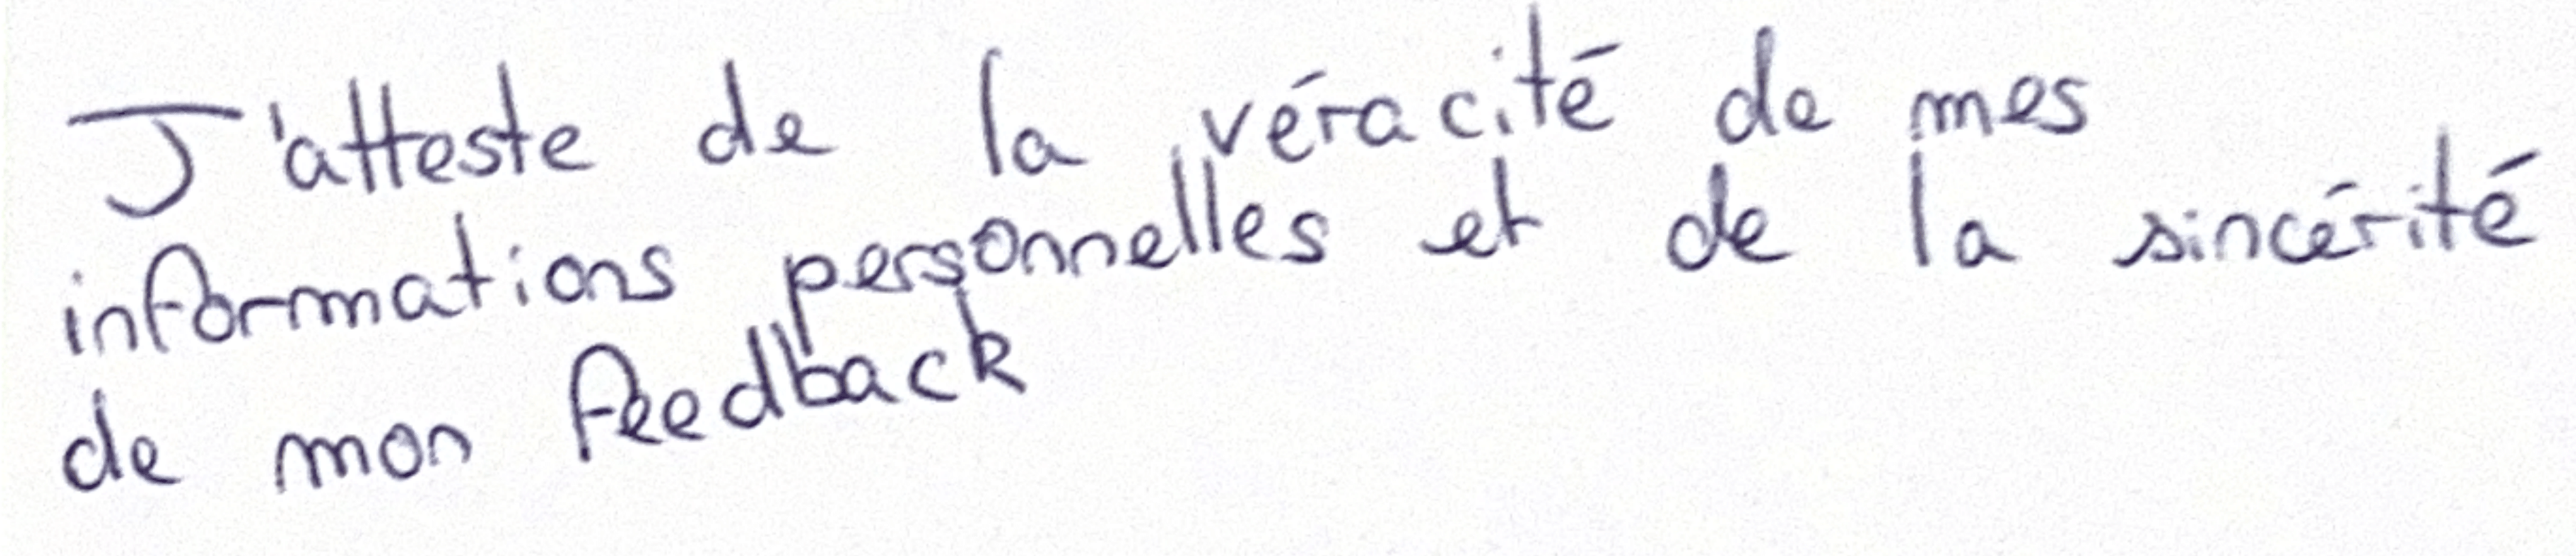 J'atteste de la véracité de mes
informations personnelles et de la sincérité
de mon feedback